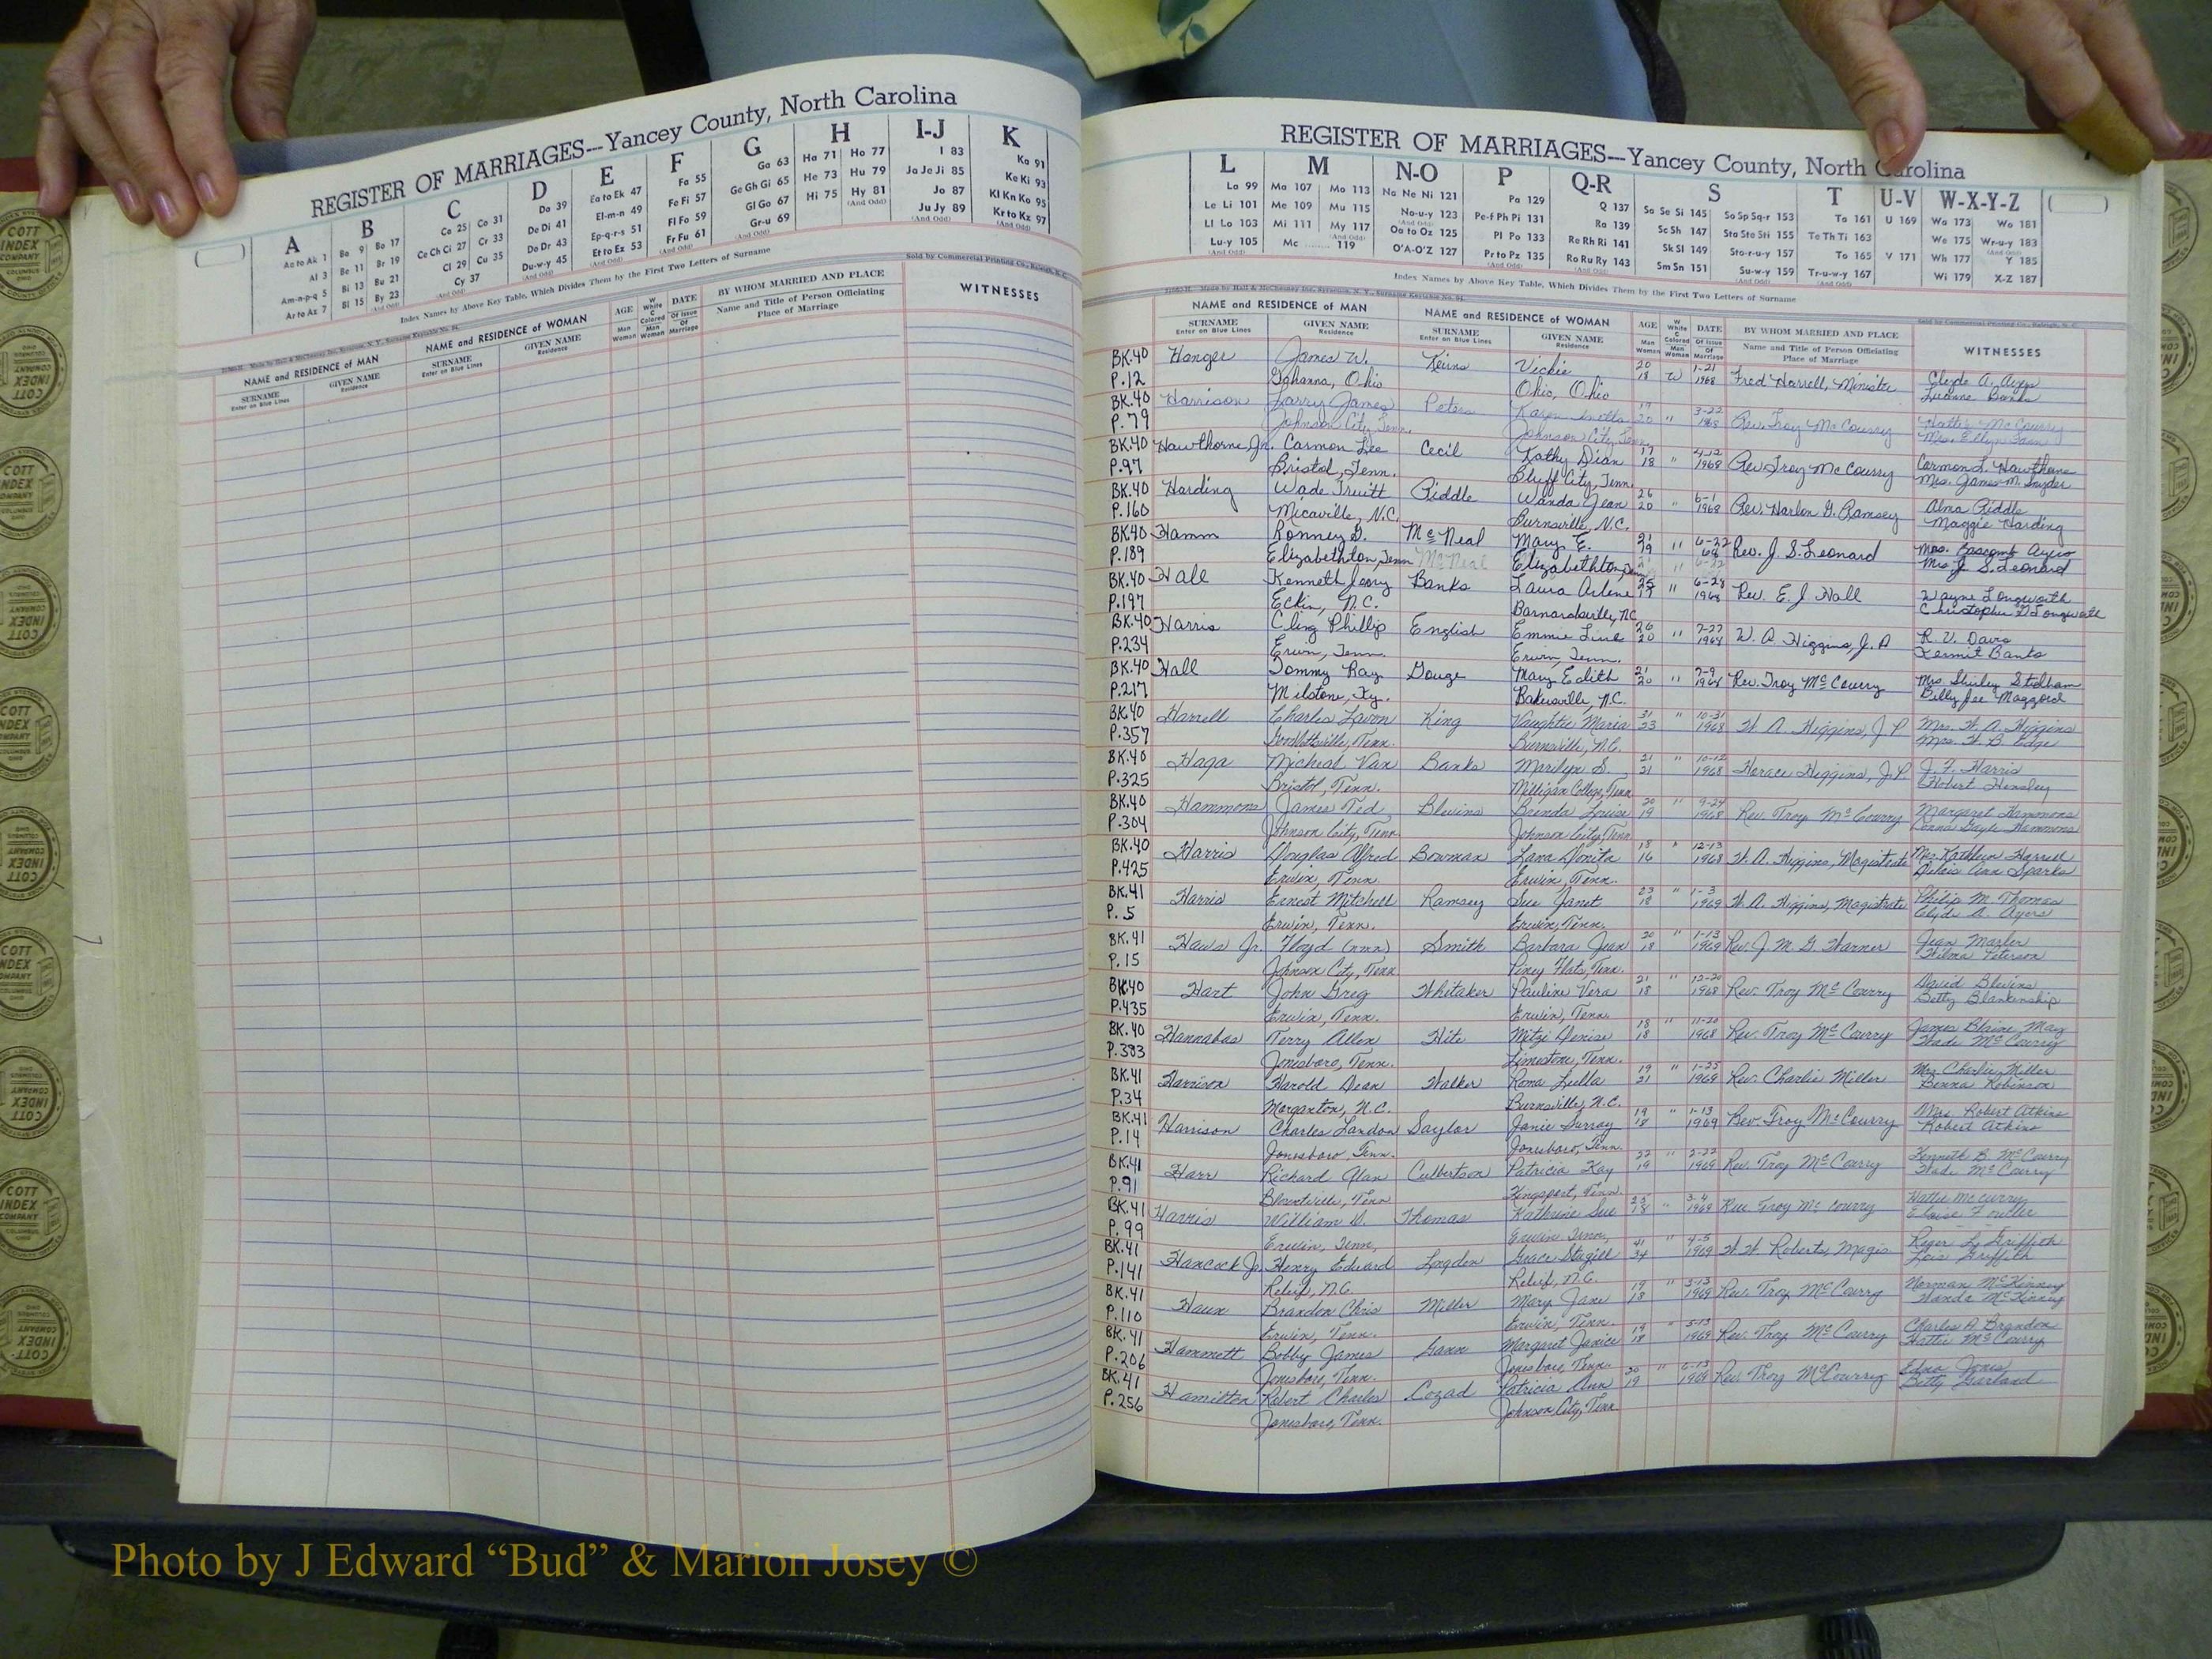 REGISTER OF MARRIAGES---Yancey County, North Carolina
A B C D E F G H I-J K
Aa to Ak 1 Ba 9 Bo 17 Ca 25 Co 31 Da 39 Ea to Ek 47 Fa 55 Ga 63 Ha 71 Ho 77 I 83 Ka 91
Al 3 Be 11 Br 19 Ce Ch Ci 27 Cr 33 De Di 41 El-m-n 49 Fe Fi 57 Ge Gh Gi 65 He 73 Hu 79 Ja Je Ji 85 Ke Ki 93
Am-n-p-q 5 Bi 13 Bu 21 Cl 29 Cu 35 Do Dr 43 Ep-q-r-s 51 Fl Fo 59 Gl Go 67 Hi 75 Hy 81 Jo 87 Kl Kn Ko 95
Ar to Az 7 Bl 15 By 23 Cy 37 Du-w-y 45 Et to Ez 53 Fr Fu 61 Gr-u 69 Ju Jy 89 Kr to Kz 97
Index Names by Above Key Table, Which Divides Them by the First Two Letters of Surname
Sold by Commercial Printing Co., Raleigh, N. C.
NAME and RESIDENCE of MAN NAME and RESIDENCE of WOMAN AGE DATE BY WHOM MARRIED AND PLACE WITNESSES
SURNAME GIVEN NAME SURNAME GIVEN NAME Name and Title of Person Officiating
Enter on Blue Lines Residence Enter on Blue Lines Residence Place of Marriage
REGISTER OF MARRIAGES---Yancey County, North Carolina
L M N-O P Q-R S T U-V W-X-Y-Z
La 99 Ma 107 Mo 113 Na Ne Ni 121 Pa 129 Q 137 Sa Se Si 145 So Sp Sq-r 153 Ta 161 U 169 Wa 173 Wo 181
Le Li 101 Me 109 Mu 115 No-u-y 123 Pe-f Ph Pi 131 Ra 139 Sc Sh 147 Sta Ste Sti 155 Te Th Ti 163 We 175 Wr-u-y 183
Ll Lo 103 Mi 111 My 117 Oa to Oz 125 Pl Po 133 Re Rh Ri 141 Sk Sl 149 Sto-r-u-y 157 To 165 V 171 Wh 177 Y 185
Lu-y 105 Mc 119 O'A-O'Z 127 Pr to Pz 135 Ro Ru Ry 143 Sm Sn 151 Su-w-y 159 Tr-u-w-y 167 Wi 179 X-Z 187
Index Names by Above Key Table, Which Divides Them by the First Two Letters of Surname
NAME and RESIDENCE of MAN NAME and RESIDENCE of WOMAN AGE DATE BY WHOM MARRIED AND PLACE WITNESSES
SURNAME GIVEN NAME SURNAME GIVEN NAME Name and Title of Person Officiating
Enter on Blue Lines Residence Enter on Blue Lines Residence Place of Marriage
BK.40 Hanger James W. Keirns Vickie 20 1-21 Fred Harrell, Minister Clyde A. Ayers
P.12 Gahanna, Ohio Ohio, Ohio 18 W 1968 Luanne Banks
BK.40 Harrison Larry James Peters 3-22 Rev. Troy McCourry Hattie McCourry
P.79 Johnson City, Tenn. Johnson City, Tenn. 20 " 1968
BK.40 Hawthorne, Jr. Carmon Lee Cecil Kathy Dian 17 4-12 Rev Troy McCourry Carmon L. Hawthorne
P.97 Bristol, Tenn. Bluff City, Tenn. 18 " 1968 Mrs. James M. Snyder
BK.40 Harding Wade Truitt Riddle Wanda Jean 26 6-1 Rev. Harlon G. Ramsey Alma Riddle
P.160 Micaville, N.C. Burnsville, N.C. 20 " 1968 Maggie Harding
BK.40 Hamm Ronney G. McNeal Mary E. 21 6-22 Rev. J. S. Leonard Mrs. Bascomb Ayers
P.189 Elizabethton, Tenn McNeal Elizabethton, Tenn 19 " 68 Mrs. J. S. Leonard
BK.40 Hall Kenneth Jerry Banks Laura Arlene 25 6-28 Rev. E. J Hall Wayne Longworth
P.197 N.C. Barnardsville, N.C. 17 " 1968 Christopher
BK.40 Harris Phillip English Emmie 26 7-27 W. A. Higgins, J.P R. V. Davis
P.234 Erwin, Tenn. Erwin, Tenn. 20 " 1968 Kermit Banks
BK.40 Hall Tommy Ray Gouge Mary Edith 21 7-9 Rev. Troy McCourry Mrs. Shirley Stidham
P.217 Milstone, Ky. Bakersville, N.C. 20 " 1968 Billy Joe Maggard
BK.40 Harrell Charles Lavon King Vaughtie Maria 31 10-31 W. A. Higgins, J.P Mrs. W. A. Higgins
P.357 Goodlettsville, Tenn. Burnsville, N.C. 23 " 1968 Mrs. W. B. Edge
BK.40 Haga Micheal Van Banks Marilyn S. 21 10-12 Horace Higgins, J.P. J. F. Harris
P.325 Bristol, Tenn. Milligan College, Tenn 21 " 1968 Robert Hensley
BK.40 Hammons James Ted Blevins Brenda Louise 20 9-24 Rev. Troy McCourry Margaret Hammons
P.304 Johnson City, Tenn Johnson City, Tenn 19 " 1968 Gayle Hammons
BK.40 Harris Douglas Alfred Bowman Lana Donita 18 12-13 W. A. Higgins, Magistrate Mrs. Kathleen Harrell
P.425 Erwin, Tenn. Erwin, Tenn. 16 " 1968 Ann Sparks
BK.41 Harris Ernest Mitchell Ramsey Sue Janet 23 1-3 W. A. Higgins, Magistrate Philip M. Thomas
P.5 Erwin, Tenn. Erwin, Tenn. 18 " 1969 Clyde A. Ayers
BK.41 Haws Jr. Floyd (nmn) Smith Barbara Jean 20 1-13 Rev. J. M. G. Warner Jean Marler
P.15 Johnson City, Tenn Piney Flats, Tenn. 18 " 1969 Wilma Peterson
BK.40 Hart John Greg Whitaker Pauline Vera 21 12-20 Rev. Troy McCourry David Blevins
P.435 Erwin, Tenn. Erwin, Tenn. 18 " 1968 Betty Blankenship
BK.40 Hannabas Terry Allen Hite Mitzi Denise 18 11-20 Rev. Troy McCourry James Blaine May
P.383 Jonesboro, Tenn. Limestone, Tenn. 18 " 1968 Wade McCourry
BK.41 Harrison Harold Dean Walker Roma Luella 19 1-25 Rev. Charlie Miller Mrs. Charlie Miller
P.34 Morganton, N.C. Burnsville, N.C. 21 " 1969 Benna Robinson
BK.41 Harrison Charles Landon Saylor Janie Surray 19 1-13 Rev. Troy McCourry Mrs. Robert Atkins
P.14 Jonesboro, Tenn. Jonesboro, Tenn. 18 " 1969 Robert Atkins
BK.41 Harr Richard Alan Culbertson Patricia Kay 22 2-22 Rev. Troy McCourry Kenneth B. McCourry
P.91 Blountville, Tenn Kingsport, Tenn. 19 " 1969 Wade McCourry
BK.41 Harris William D. Thomas Kathrine Sue 25 3-4 Rev. Troy McCourry Hattie McCurry
P.99 Erwin, Tenn, Erwin Tenn, 18 " 1969 Elaise Fowler
BK.41 Hancock Jr. Henry Edward Logdon Grace Stegill 41 4-5 W. W. Roberts, Magis Roger L. Griffith
P.141 Relief, N.C. Relief, N.C. 34 " 1969 Lois Griffith
BK.41 Haun Brandon Chris Miller Mary Jane 19 3-13 Rev. Troy McCourry Norman McKinney
P.110 Erwin, Tenn. Erwin, Tenn. 18 " 1969 Wanda McKinney
BK.41 Hammett Bobby James Gann Margaret Janice 19 5-13 Rev. Troy McCourry Charles A Brandon
P.206 Jonesboro, Tenn. Jonesboro, Tenn. 18 " 1969 Hattie McCourry
BK.41 Hamilton Robert Charles Cozad Patricia Ann 20 6-13 Rev. Troy McCourry Edna Jones
P.256 Jonesboro, Tenn. Johnson City, Tenn 19 " 1969 Betty Garland
COTT
INDEX
COMPANY
COLUMBUS
OHIO
Photo by J Edward “Bud” & Marion Josey ©